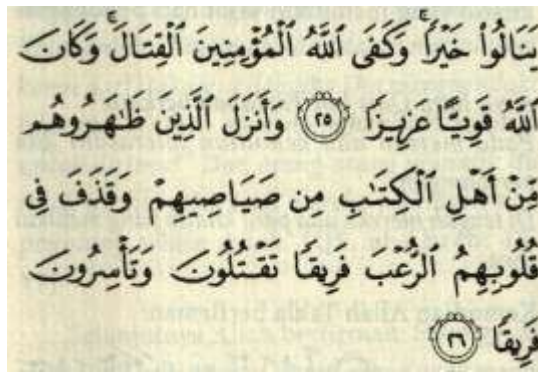 يَنَالُوا۟ خَيْرًا ۚ وَكَفَى ٱللَّهُ ٱلْمُؤْمِنِينَ ٱلْقِتَالَ ۚ وَكَانَ
ٱللَّهُ قَوِيًّا عَزِيزًا ٢٥ وَأَنزَلَ ٱلَّذِينَ ظَـٰهَرُوهُم
مِّنْ أَهْلِ ٱلْكِتَـٰبِ مِن صَيَاصِيهِمْ وَقَذَفَ فِى
قُلُوبِهِمُ ٱلرُّعْبَ فَرِيقًا تَقْتُلُونَ وَتَأْسِرُونَ
فَرِيقًا ٢٦